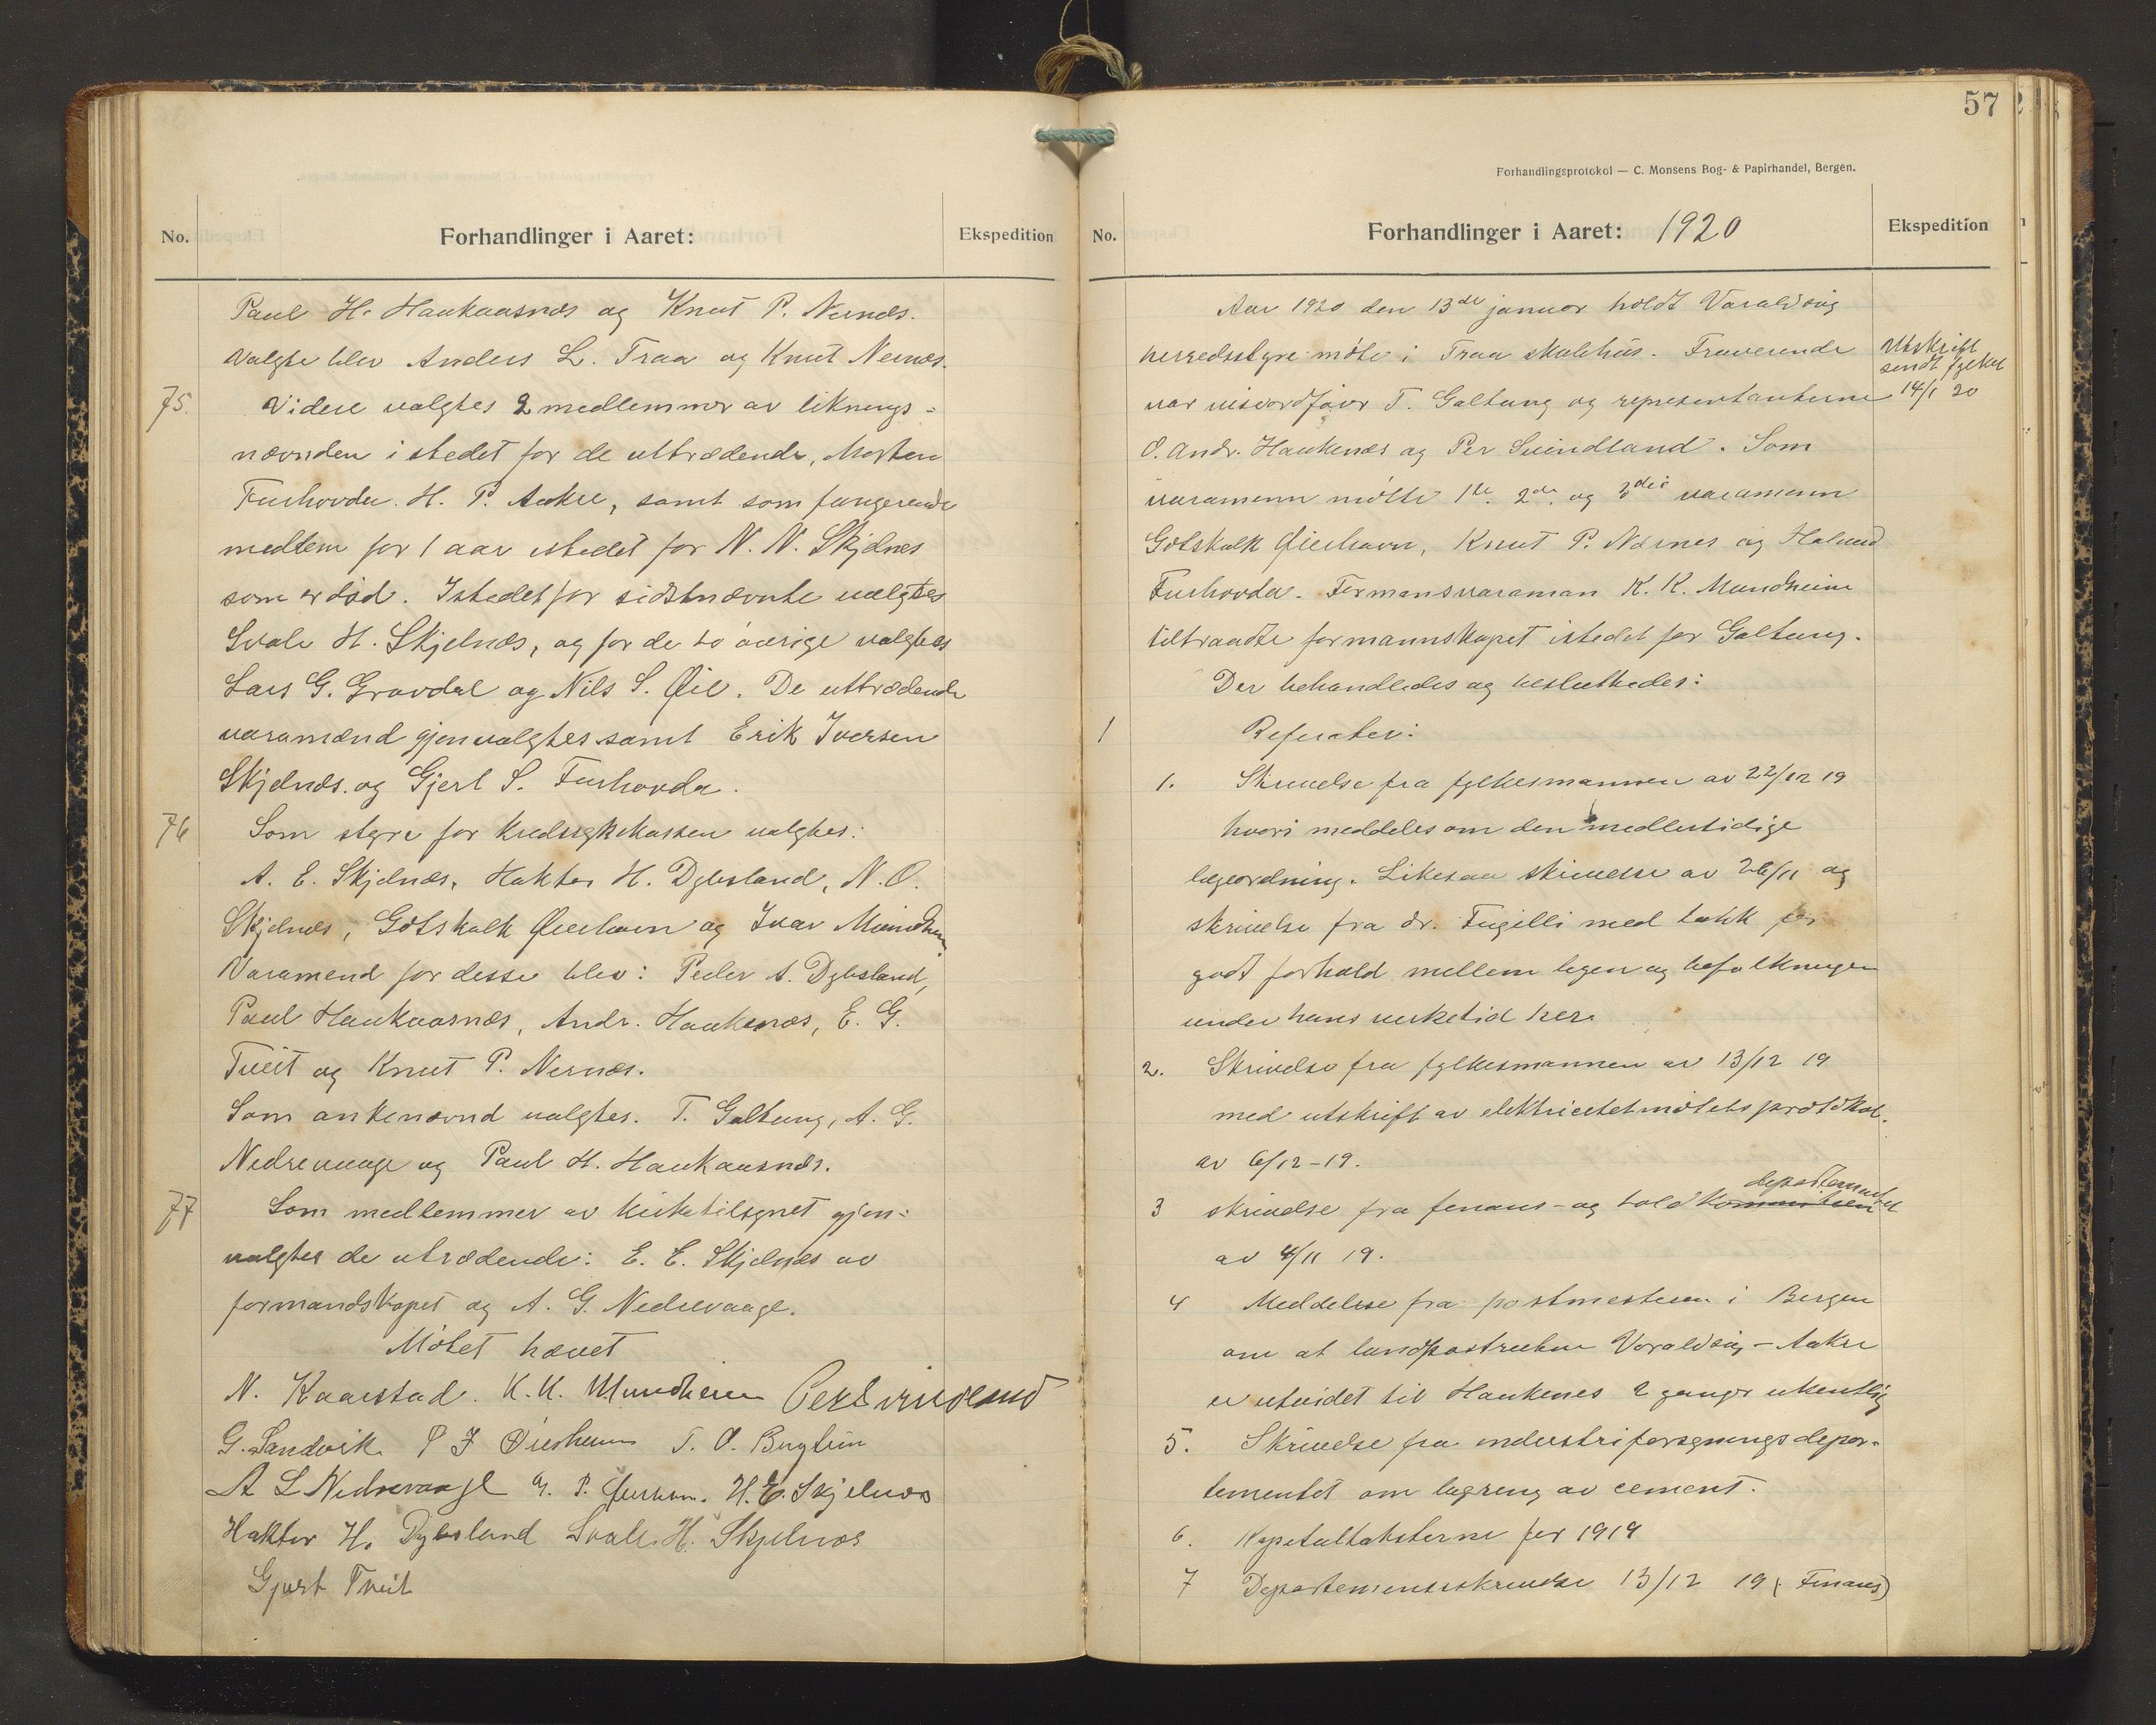 No.
Forhandlinger i Aaret:
Ekspedition
Paul H. Haukaasnæs og Knut P. Nernæs.
Valgte blev Anders L. Traa og Knut Nernæs.
75. Videre valgtes 2 medlemmer av liknings-
nævnden istedet for de uttrædende, Morten
Furhovda. H. P. Aakre, samt som fungerende
medlem for 1 aar istedet for N. N. Skjelnes
som er død. Istedet for sidstnævnte valgtes
Svale H. Skjelnæs, og for de to øvrige valgtes
Lars G. Gravdal og Nils S. Øie. De uttrædende
varamænd gjenvalgtes samt Erik Iversen
Skjelnæs. og Gjert S. Furhovda.
76 Som styre for Kredssykekassen valgtes:
A. E. Skjelnæs, Haktor H. Dybsland, N. O.
Skjelnæs, Gotskalk Øierhavn og Ivar Mundheim
Varamend for desse blev: Peder A. Dybsland,
Paul Haukaasnæs, Andr. Haukenæs, E. G.
Tveit og Knut P. Nernæs.
Som ankenævnd valgtes. T. Galtung, A. G.
Nedrevaage og Paul H. Haukaasnæs.
77 Som medlemmer av kirketilsynet gjen-
valgtes de utrædende: E. E. Skjelnæs av
formandskapet og A. G. Nedrevaage.
Møtet hævet
N. Kaarstad. K. K. Mundheim Per Svindland
G. Sandvik P J Øierhavn T. O.
A L Nedrevaage G. P. Øierhavn. H. E. Skjelnæs
Haktor H. Dybsland Svale H. Skjelnæs
Gjert Tveit
57
Forhandlingsprotokol — C. Monsens Bog- & Papirhandel, Bergen.
No.
Forhandlinger i Aaret: 1920
Ekspedition
Aar 1920 den 13de januar holdt Varaldsøy
herredsstyre møte i Traa skulehus. Fraverende
Utskrift
sendt fylket
14/1 20
var viseordfører T. Galtung og representanterne
O. Andr. Haukenæs og Per Svindland. Som
varamenn møtte 1ste 2de og 3die varamenn
Gotskalk Øierhavn, Knut P. Nernes og Halvard
Furhovda. Formansvaraman K. K. Mundheim
tiltraadte formannskapet istedet for Galtung.
Der behandledes og besluttedes:
1 Referater:
1. Skrivelse fra fylkesmannen av 22/12 19
hvori meddeles om den midlertidige
lægeordning. Likesaa skrivelse av 26/11 og
skrivelse fra dr. Fugelli med takk for
godt forhold mellem legen og befolkningen
under hans virketid her.
2. Skrivelse fra fylkesmannen av 13/12 19
med utskrift av elektricitetmøtets protokol.
av 6/12-19.
3 skrivelse fra finans- og told kommiteen departementet
av 4/11 19.
4 Meddelese fra postmesteren i Bergen
om at landpostruten Varaldsøy - Aakre
er utvidet til Haukenes 2 ganger ukentlig
5. Skrivelse fra industriforsyningsdepar-
tementet om lagring av cement.
6. Kapitaltaksterne for 1919
7 Departementsskrivelse 13/12 19 (Finans)